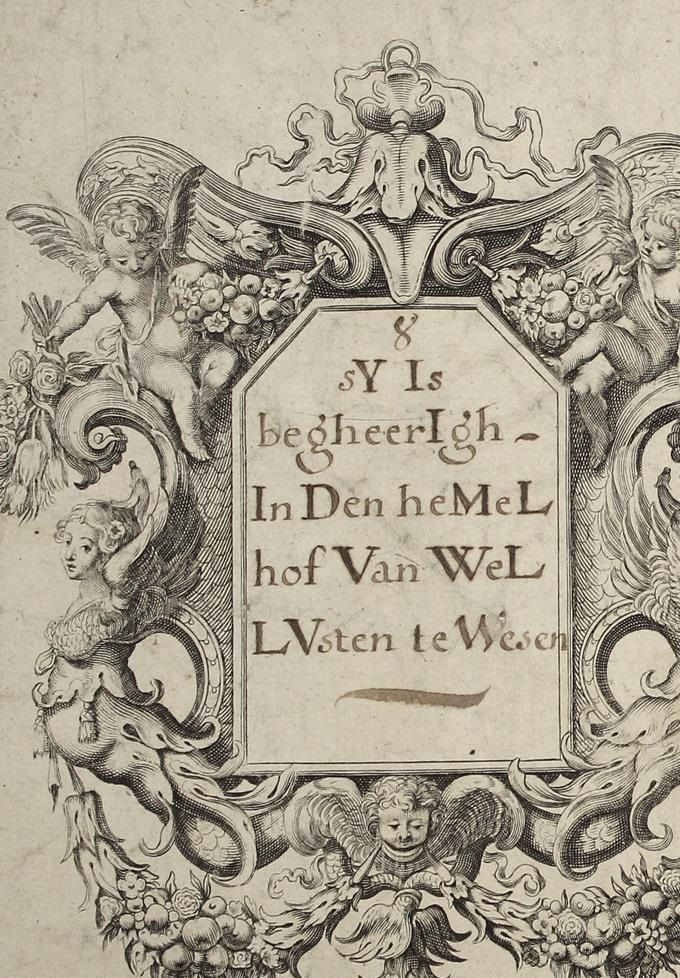 8
sY Is
begheerIgh -
In Den heMeL
hof Van WeL
LVsten te Wesen